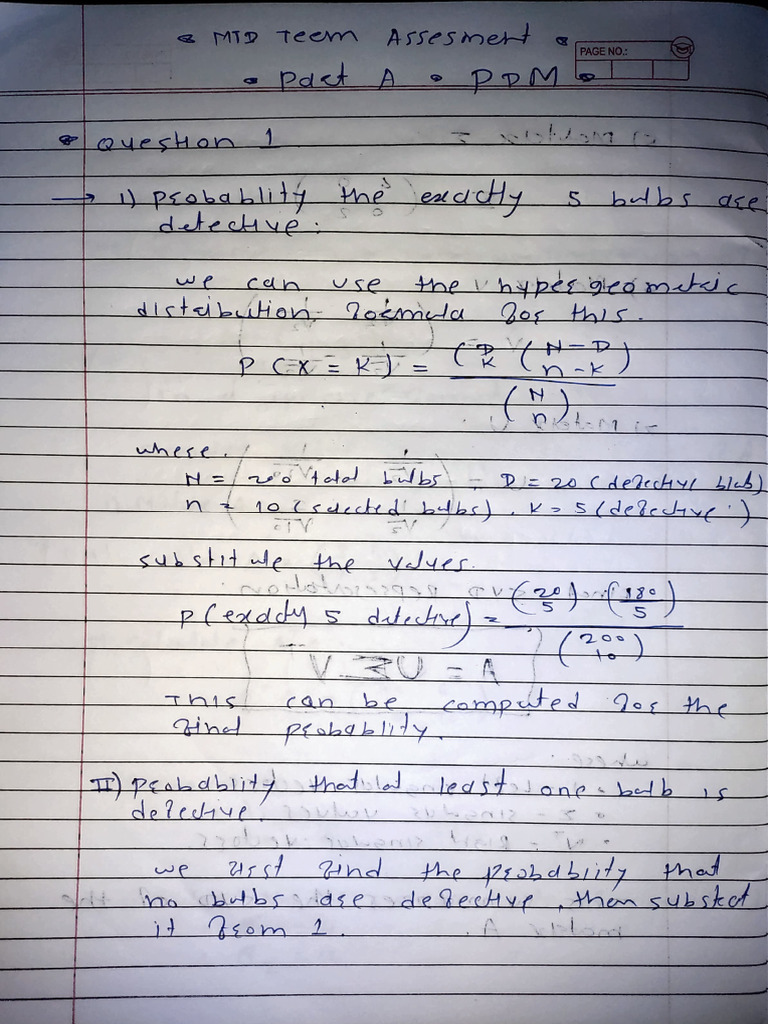 MID Term Assesment
PAGE NO.:
Part A • PDM
Question 1
→ i) probablity the exactly 5 bulbs are
detective:
we can use the hypergeometric
distribution. formula for this.
P (X = K) = (D K) (N-D n-K) / (N n)
where.
N = 200 total bulbs - D = 20 (defective blub)
n = 10 (selected bulbs). K = 5 (defective)
substitute the values.
P (exactly 5 detective) = (20 5) (180 5) / (200 10)
This can be computed for the
find probablity.
II) probabliity that at least one bulb is
defective.
we first find the probabiity that
no bulbs are defective, then substrct
it from 1.